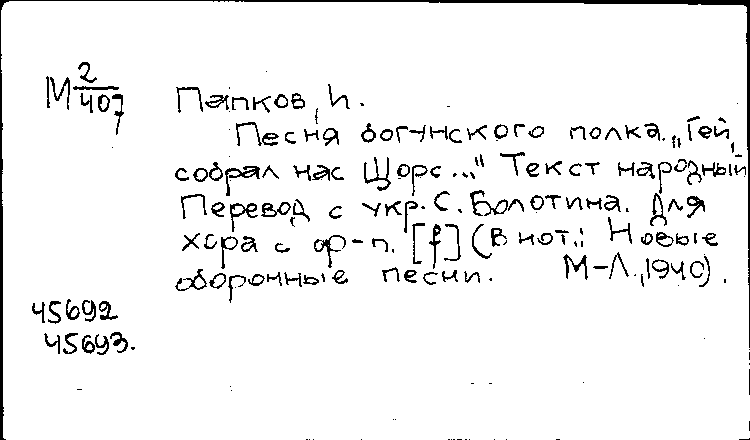 М 2/407
Папков, И.
Песня богунского полка. „Гей,
собрал нас Щорс..." Текст народный
Перевод с укр. С. Болотина. Для
хора с ф-п. [f] (В нот.: Новые
оборонные песни. М-Л., 1940).
45692
45693.